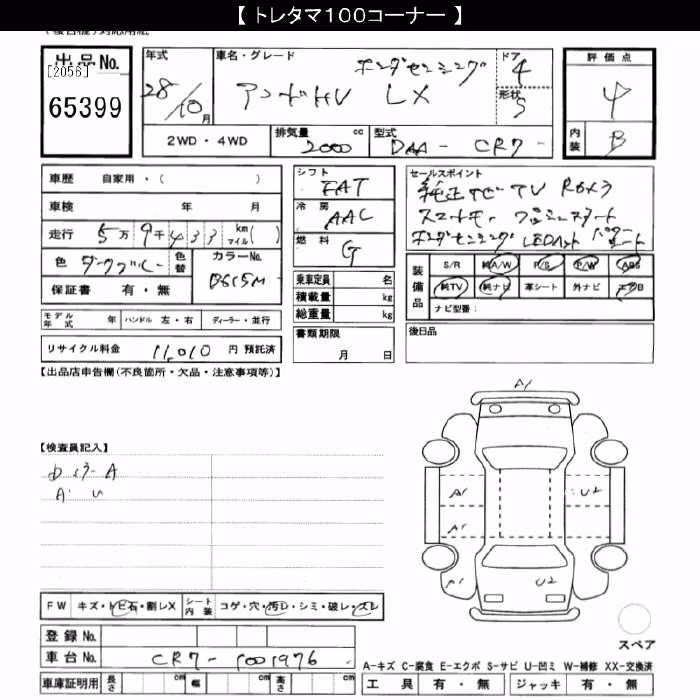 【 トレタマ100コーナー 】
出品No.
[2056]
65399
年式
28/10月
車名・グレード
ホンダセンシング
アコードHV LX
ドア
4
形状
S
評価点
4
内装
B
2WD・4WD
排気量 2000 cc
型式 DAA-CR7-
車歴 自家用・( )
車検 年 月
走行 5万9千433 km マイル( )
色 ダークブルー
色替
カラーNo. B615M
保証書 有・無
モデル年式 年
ハンドル 左・右
ディーラー・並行
リサイクル料金 11,010 円 預託済
シフト FAT
冷房 AAC
燃料 G
乗車定員 名
積載量 kg
総重量 kg
書類期限
月 日
セールスポイント
純正ナビ TV Rカメラ
スマートキー プッシュスタート
ホンダセンシング LEDライト パワーシート
装備品
S/R 純A/W P/S P/W ABS
純TV 純ナビ 革シート 外ナビ エアB
ナビ型番:
後日品
【出品店申告欄(不良箇所・欠品・注意事項等)】
【検査員記入】
A
A U
A1
A1
U2
A1
A1
U2
FW キズ・トビ石・割レX
シート内装 コゲ・穴・汚レ・シミ・破レ・スレ
スペア
登録No.
車台No. CR7-1001976
車庫証明用 長さ cm 幅 cm 高さ cm
A-キズ C-腐食 E-エクボ S-サビ U-凹ミ W-補修 XX-交換済
工具 有・無 ジャッキ 有・無